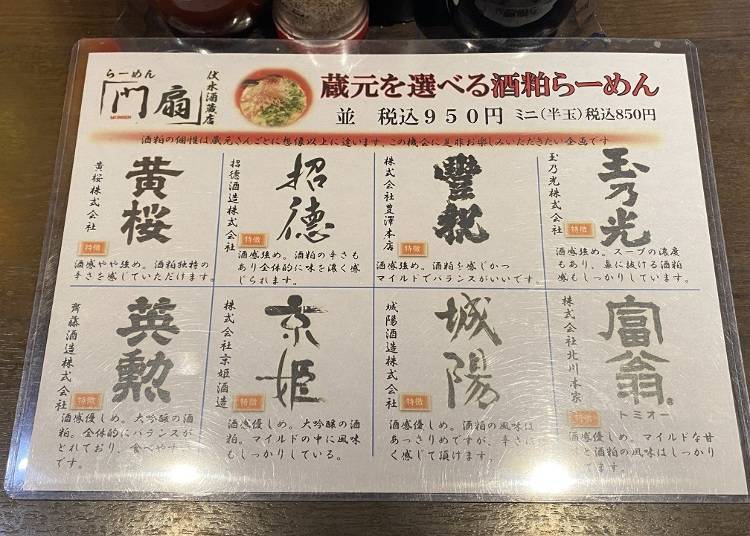 らーめん
門扇
MONSEN
伏水酒蔵店
蔵元を選べる酒粕らーめん
並 税込950円 ミニ(半玉)税込850円
酒粕の個性は蔵元さんごとに想像以上に違います。この機会に是非お楽しみいただきたい企画です
黄桜
黄桜株式会社
特徴
酒感やや強め。酒粕独特の
辛さを感じていただけます。
招德
招德酒造株式会社
特徴
酒感強め。酒粕の辛さも
あり全体的に味を濃く感
じられます。
豊祝
株式会社豊澤本店
特徴
酒感強め。酒粕を感じかつ
マイルドでバランスがいいです
玉乃光
玉乃光株式会社
特徴
酒感強め。スープの濃度
もあり、鼻に抜ける酒粕
感もしっかりしています。
英勲
齊藤酒造株式会社
特徴
酒感優しめ。大吟醸の酒
粕。全体的にバランスが
とれており、食べやす
です。
京姫
株式会社京姫酒造
特徴
酒感優しめ。大吟醸の酒
粕。マイルドの中に風味
もしっかりしている。
城陽
城陽酒造株式会社
特徴
酒感優しめ。酒粕の風味は
あっさりめですが、辛さは
く感じて頂けます。
富翁®
トミオー
株式会社北川本家
特徴
酒感優しめ。マイルドな甘
と酒粕の風味はしっかり
てます。